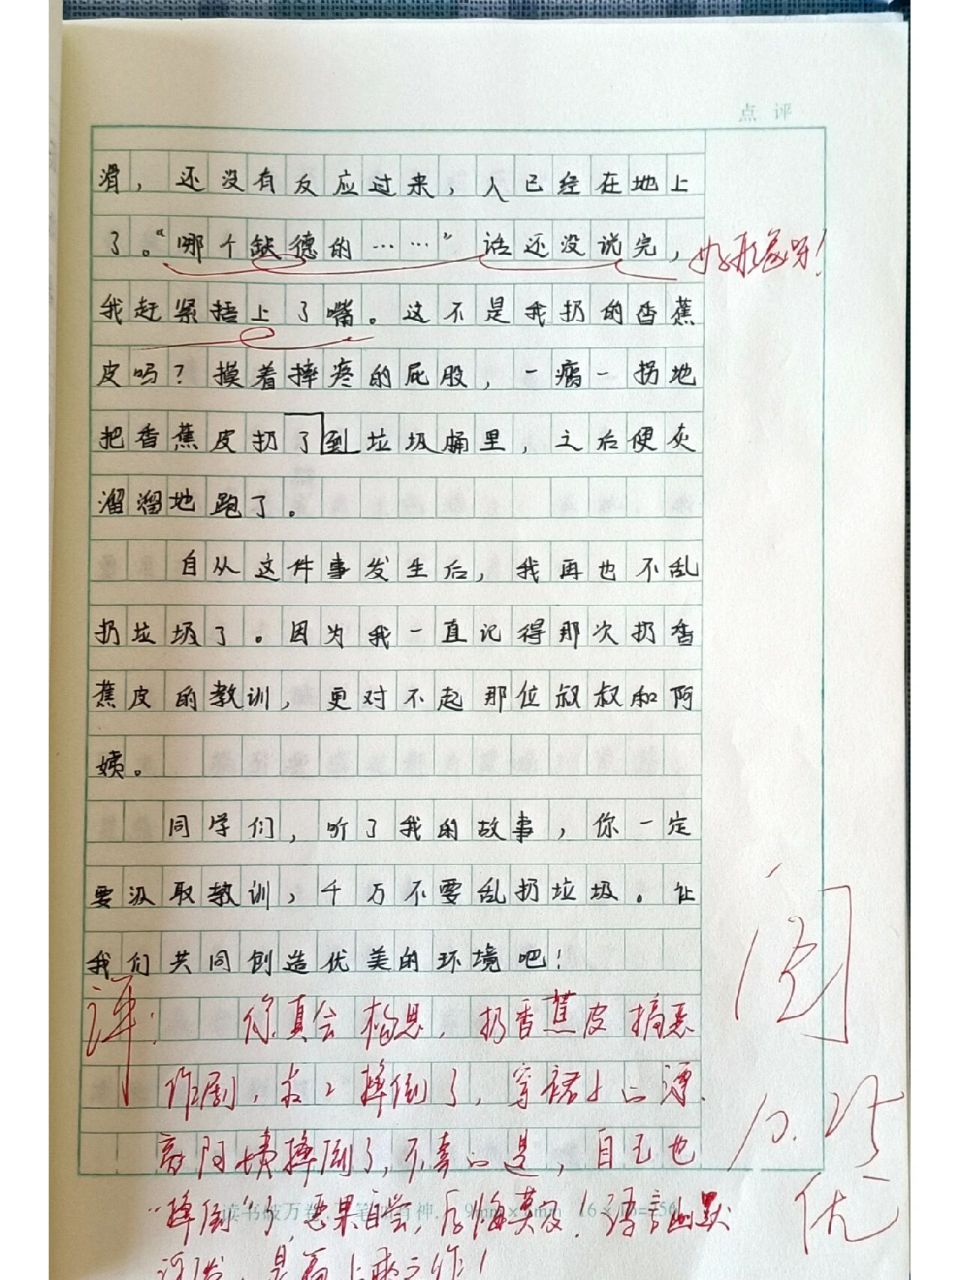 点评
滑，还没有反应过来，人已经在地上
了。“哪个缺德的……”话还没说完，
好形象呀！
我赶紧捂上了嘴。这不是我扔的香蕉
皮吗？摸着摔疼的屁股，一瘸一拐地
把香蕉皮扔了到垃圾桶里，之后便灰
溜溜地跑了。
自从这件事发生后，我再也不乱
扔垃圾了。因为我一直记得那次扔香
蕉皮的教训，更对不起那位叔叔和阿
姨。
同学们，听了我的故事，你一定
要汲取教训，千万不要乱扔垃圾。让
我们共同创造优美的环境吧！
阅
10.25
优
评：你真会构思，扔香蕉皮搞恶
作剧，叔叔摔倒了，穿裙子的漂
亮阿姨摔倒了，不幸的是，自己也
“摔倒”了，恶果自尝，后悔莫及！语言幽默
读书破万卷 笔有神 9mm 16
是篇上乘之作！